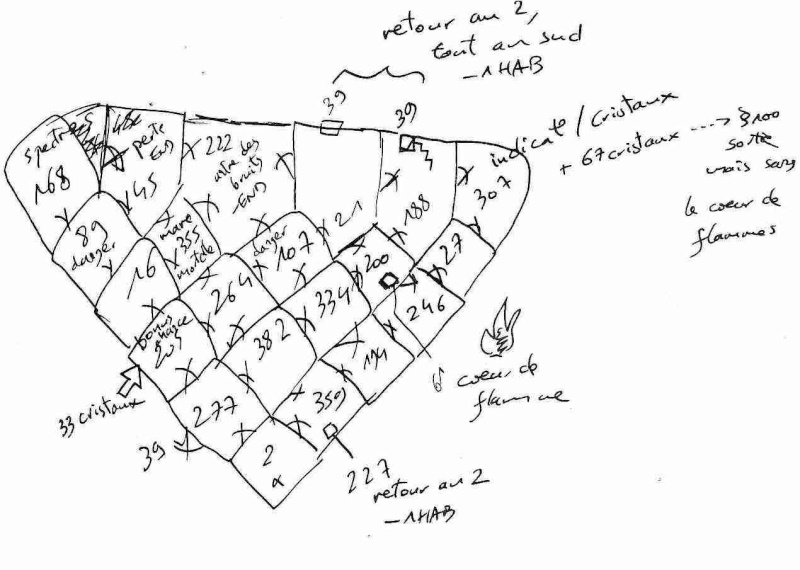 retour au 2,
tout au sud
-1HAB
39
39
indicate / Cristaux
+ 67 cristaux ----> 3100
sortie
mais sans
le coeur de
flammes
spectres
168
perte
END
45
222
bruits
-END
21
188
307
89
danger
mare
355
mortele
danger
107
200
27
16
264
334
246
bonus
chance
382
174
6 coeur de
flamme
33 cristaux
277
359
39
2
α
227
retour au 2
-1HAB